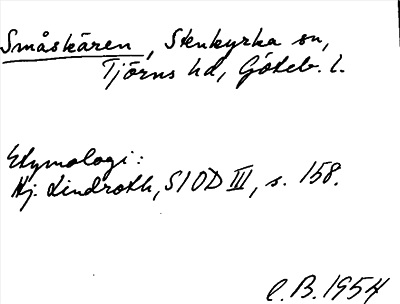 Småskären, Stenkyrka sn,
Tjörns hd, Göteb. l.
Etymologi:
Hj. Lindroth, SIOD III, s. 158.
C.B. 1954